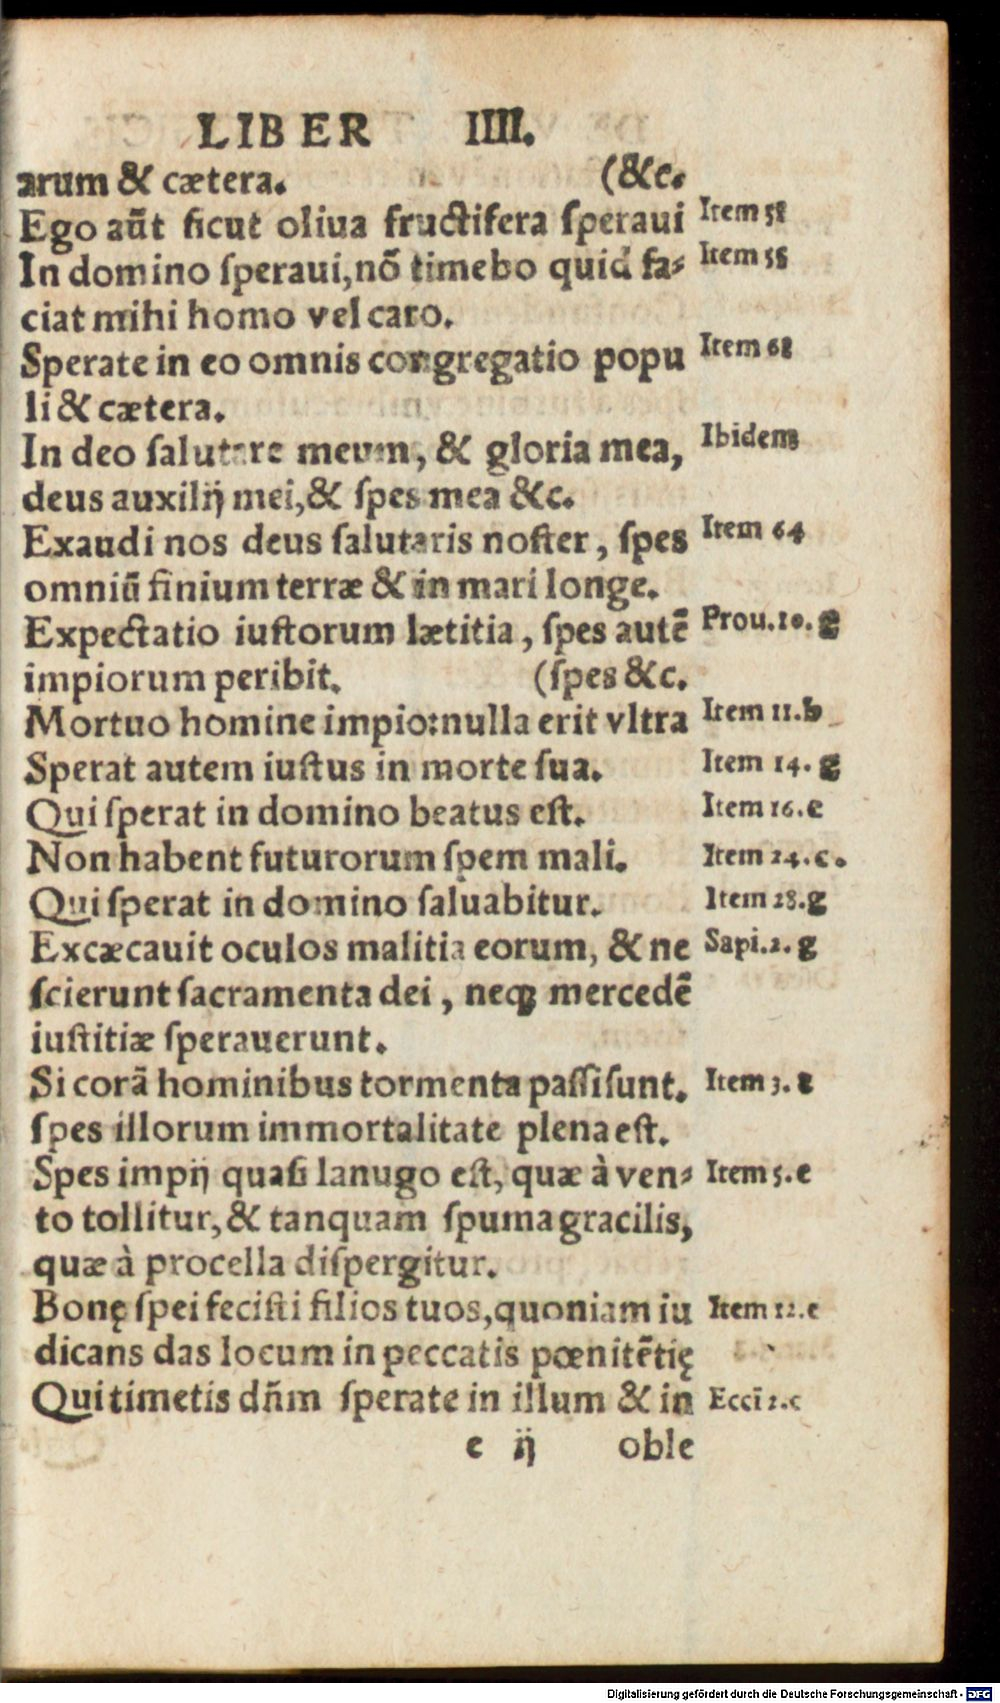 LIBER IIII.
arum & cætera. (&c.
Ego aũt ſicut oliua fructifera ſperaui Item 58
In domino ſperaui,nõ timebo quid fa⸗ Item 55
ciat mihi homo vel caro.
Sperate in eo omnis congregatio popu Item 68
li & cætera.
In deo ſalutare meum, & gloria mea, Ibidem
deus auxilij mei,& ſpes mea &c.
Exaudi nos deus ſalutaris noſter, ſpes Item 64
omniũ finium terræ & in mari longe.
Expectatio iuſtorum lætitia, ſpes autẽ Prou.10.g
impiorum peribit. (ſpes &c.
Mortuo homine impio:nulla erit vltra Item 11.b
Sperat autem iuſtus in morte ſua. Item 14.g
Qui ſperat in domino beatus eſt. Item 16.c
Non habent futurorum ſpem mali. Item 24.c.
Qui ſperat in domino ſaluabitur. Item 28.g
Excæcauit oculos malitia eorum, & ne Sapi.2.g
ſcierunt ſacramenta dei, neqꝫ mercedẽ
iuſtitiæ ſperauerunt.
Si corã hominibus tormenta paſſi ſunt. Item 3.
ſpes illorum immortalitate plena eſt.
Spes impij quaſi lanugo eſt, quæ à ven⸗ Item 5.e
to tollitur,& tanquam ſpuma gracilis,
quæ à procella diſpergitur.
Bonę ſpei feciſti filios tuos,quoniam iu Item 12.e
dicans das locum in peccatis pœnitẽtię
Qui timetis dñm ſperate in illum & in Eccī 2.c
e ij oble
Digitalisierung gefördert durch die Deutsche Forschungsgemeinschaft - DFG